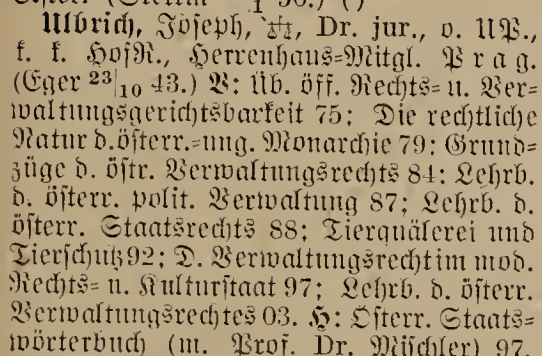 Ulbrich, Joseph, Dr. jur., o. UP.,
k. k. HofR., Herrenhaus=Mitgl. Prag.
(Eger 23|10 43.) V: Üb. öff. Rechts= u. Ver=
waltungsgerichtsbarkeit 75; Die rechtliche
Natur d.österr.=ung. Monarchie 79; Grund=
züge d. östr. Verwaltungsrechts 84; Lehrb.
d. österr. polit. Verwaltung 87; Lehrb. d.
österr. Staatsrechts 88; Tierquälerei und
Tierschutz 92; D. Verwaltungsrecht im mod.
Rechts= u. Kulturstaat 97; Lehrb. d. österr.
Verwaltungsrechtes 03. H: Österr. Staats=
wörterbuch (m. Prof. Dr. Mischler) 97.